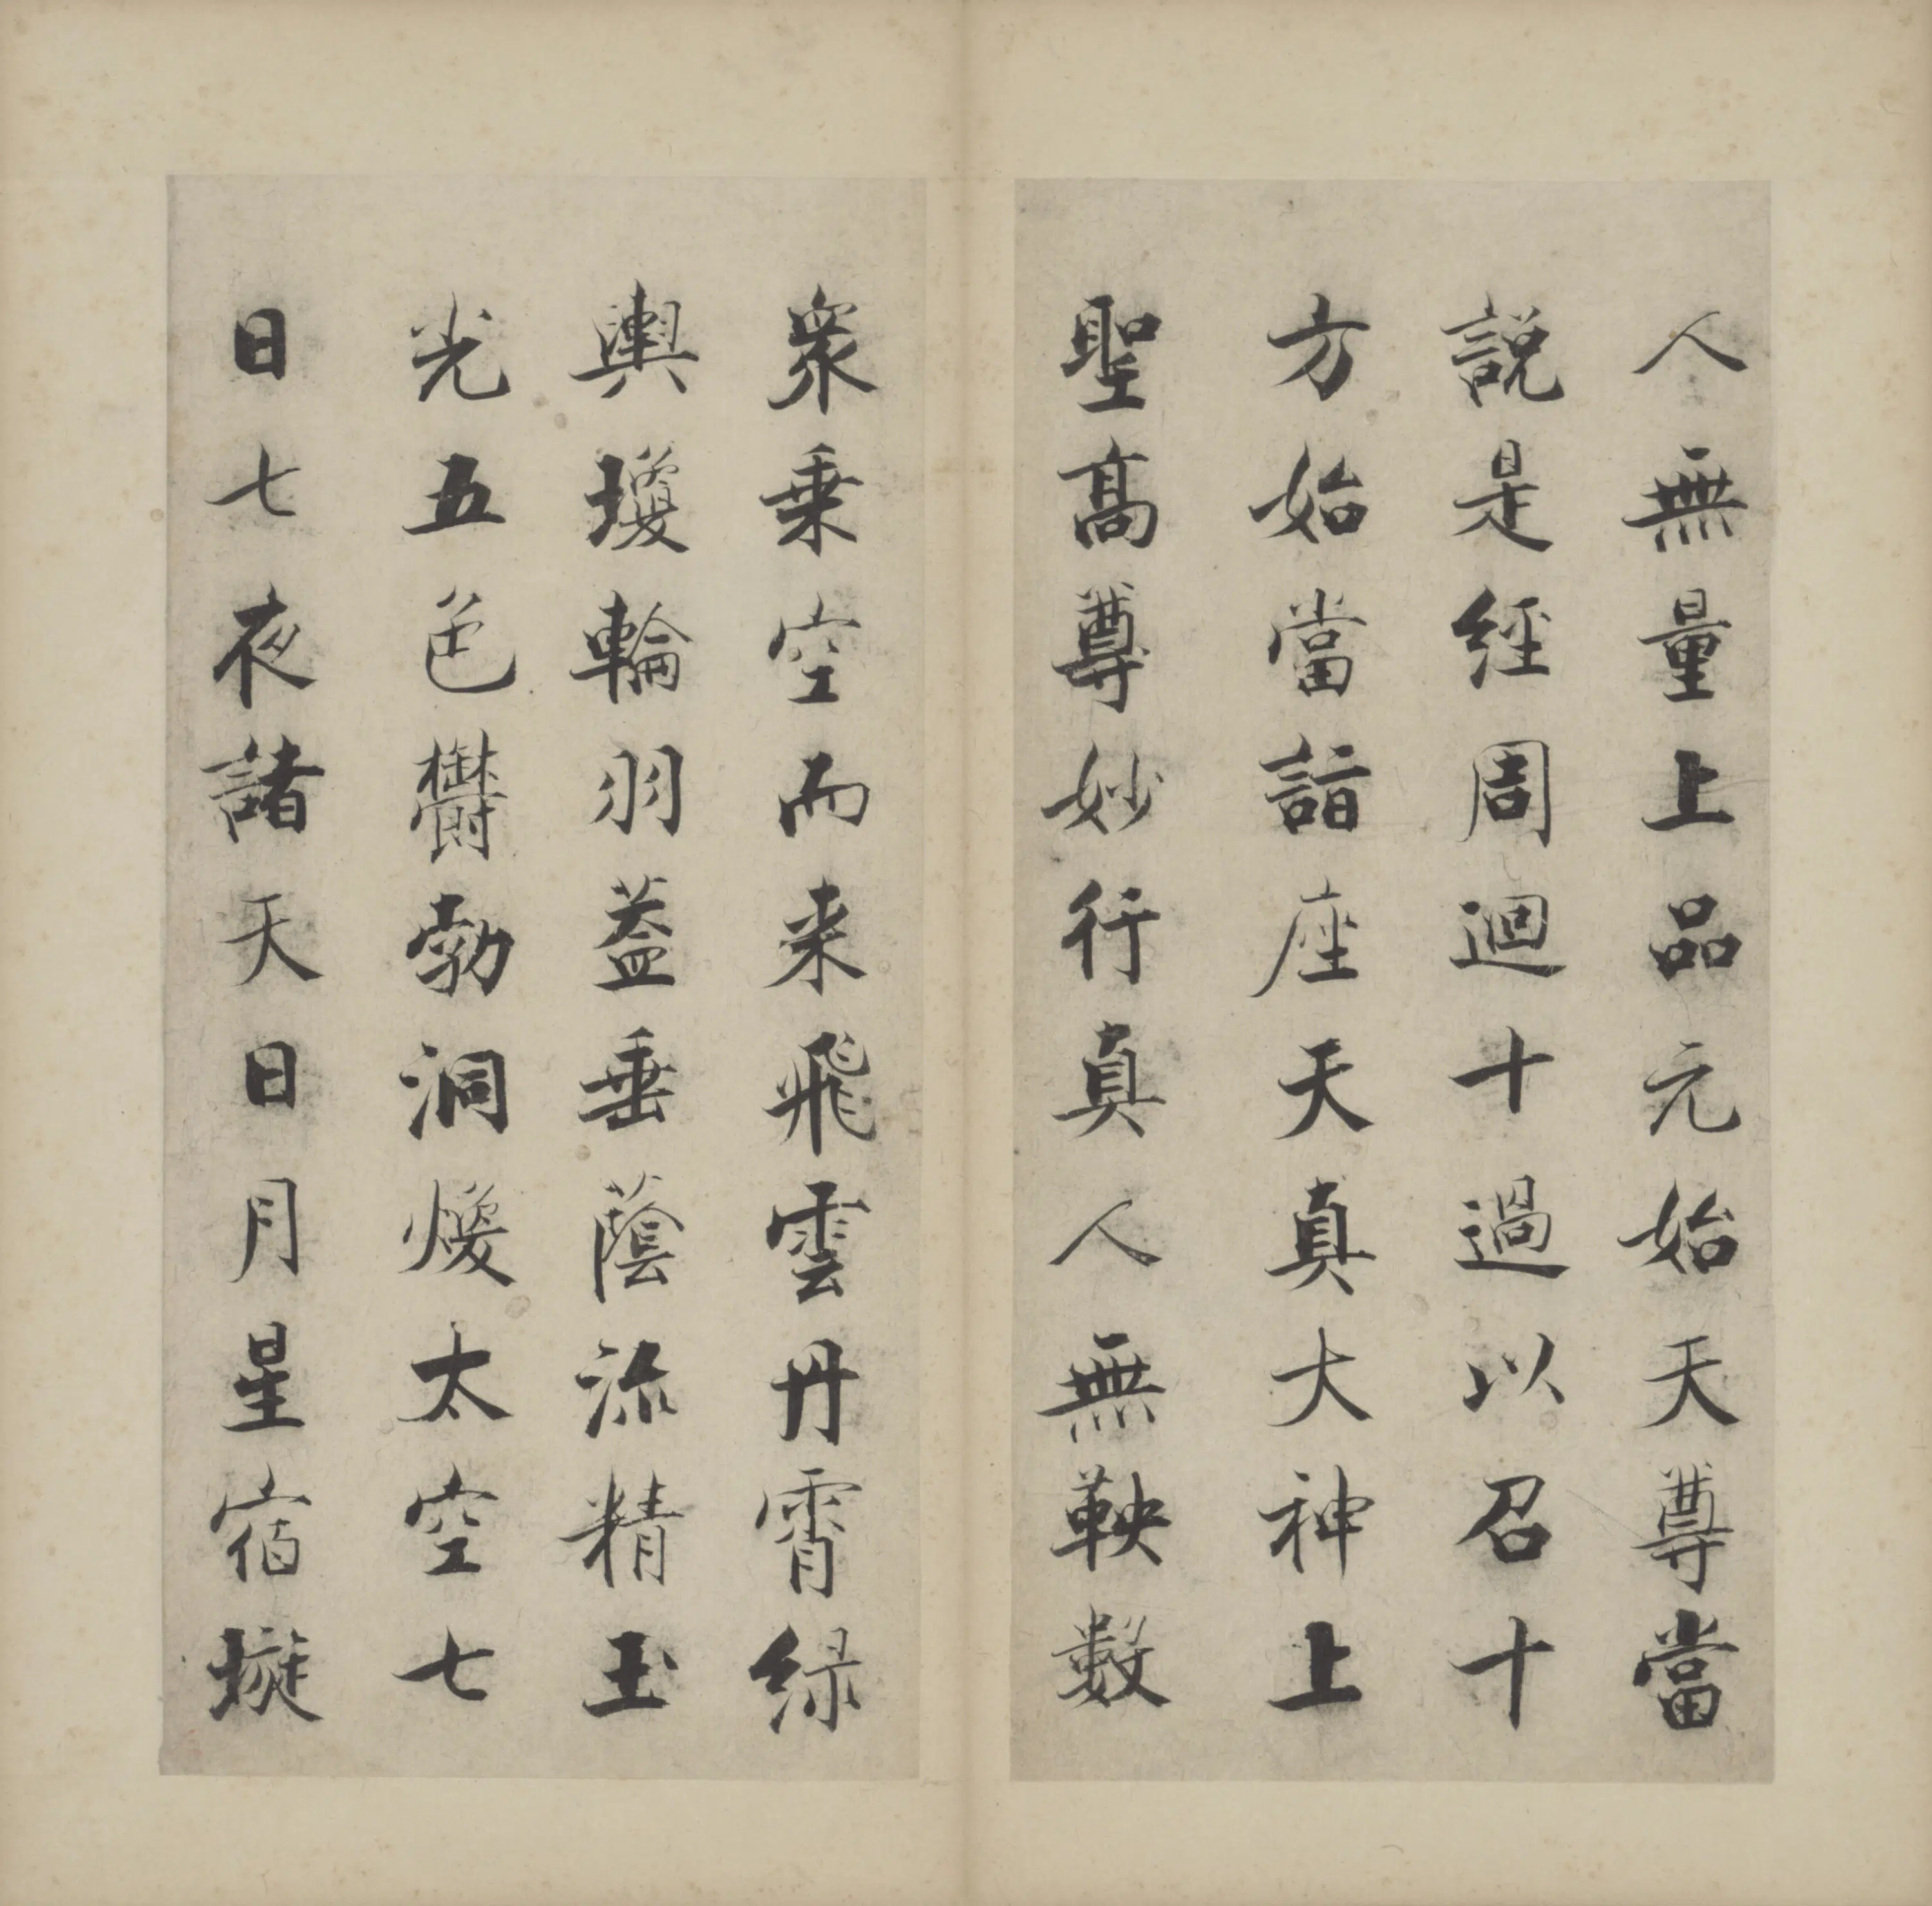 人無量上品元始天尊當
說是經周迴十過以召十
方始當詣座天真大神上
聖高尊妙行真人無鞅數
衆乗空而来飛雲丹霄緑
輿瓊輪羽蓋垂蔭流精玉
光五色鬱勃洞煥太空七
日七夜諸天日月星宿璇